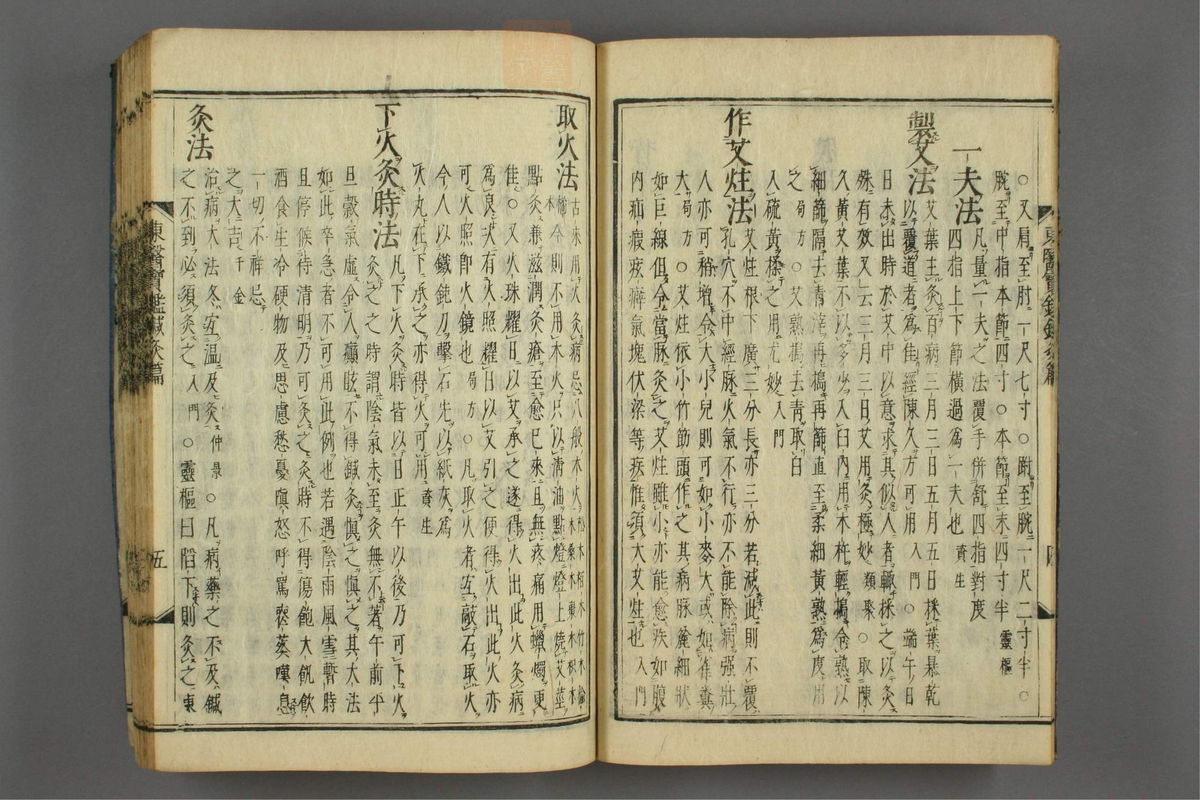 ○又肩至肘一尺七寸○肘至腕一尺二寸半○
腕至中指本節四寸○本節至末四寸半 靈樞
一夫法
凡量一夫之法覆手併舒四指對度
四指上下節橫過爲一夫也 資生
製艾法
艾葉主灸百病三月三日五月五日採葉暴乾
以覆道者爲佳經陳久方可用 入門 ○端午日
日未出時於艾中以意求其似人者輒採之以灸
殊有效又云三月三日艾用灸極妙 類聚 ○取陳
久黃艾葉不以多少入臼內用木杵輕搗令熟以
細篩隔去青滓再搗再篩直至柔細黃熟爲度用
之 局方 ○艾熟搗去青取白
入硫黃揉之用尤妙 入門
作艾炷法
艾炷根下廣三分長亦三分若減此則不覆
孔穴不中經脉火氣不行亦不能除病强壯
人亦可稍增令大小兒則可如小麥大或如雀糞
大 局方 ○艾炷依小竹筯頭作之其病脉麄細狀
如巨線但令當脉灸之艾炷雖小亦能愈疾如腹
內疝瘕痃癖氣塊伏梁等疾惟須大艾炷也 入門
取火法
古來用火灸病忌八般木火 松木柏木竹木楡
木桑木棗木枳木
橘木 今則不用木火只以淸油點燈燈上燒艾莖
點灸兼滋潤灸瘡至愈已來且無疼痛用蠟燭更
佳○又火珠耀日以艾承之遂得火出此火灸病
爲良次有火照耀日以艾引之便得火出此火亦
可火照即火鏡也 局方 ○凡取火者宜敲石取火
今人以鐵鈍刀擊石先以紙灰爲
火丸在下承之亦得火可用 資生
下火灸時法
凡下火灸時皆以日正午以後乃可下火
灸之之時謂陰氣未至灸無不着午前平
旦穀氣虛令人癲眩不得鍼灸愼之愼之其大法
如此卒急者不可用此例也若遇陰雨風雪暫時
且停候待淸明乃可灸之灸時不得傷飽大飢飮
酒食生冷硬物及思慮愁憂嗔怒呼罵㗞蒸嘆息
一切不祥忌
之大吉 千金
灸法
治病大法冬宜溫及灸 仲景 ○凡病藥之不及鍼
之不到必須灸之 入門 ○靈樞曰陷下則灸之東
東醫寶鑑鍼灸篇
五